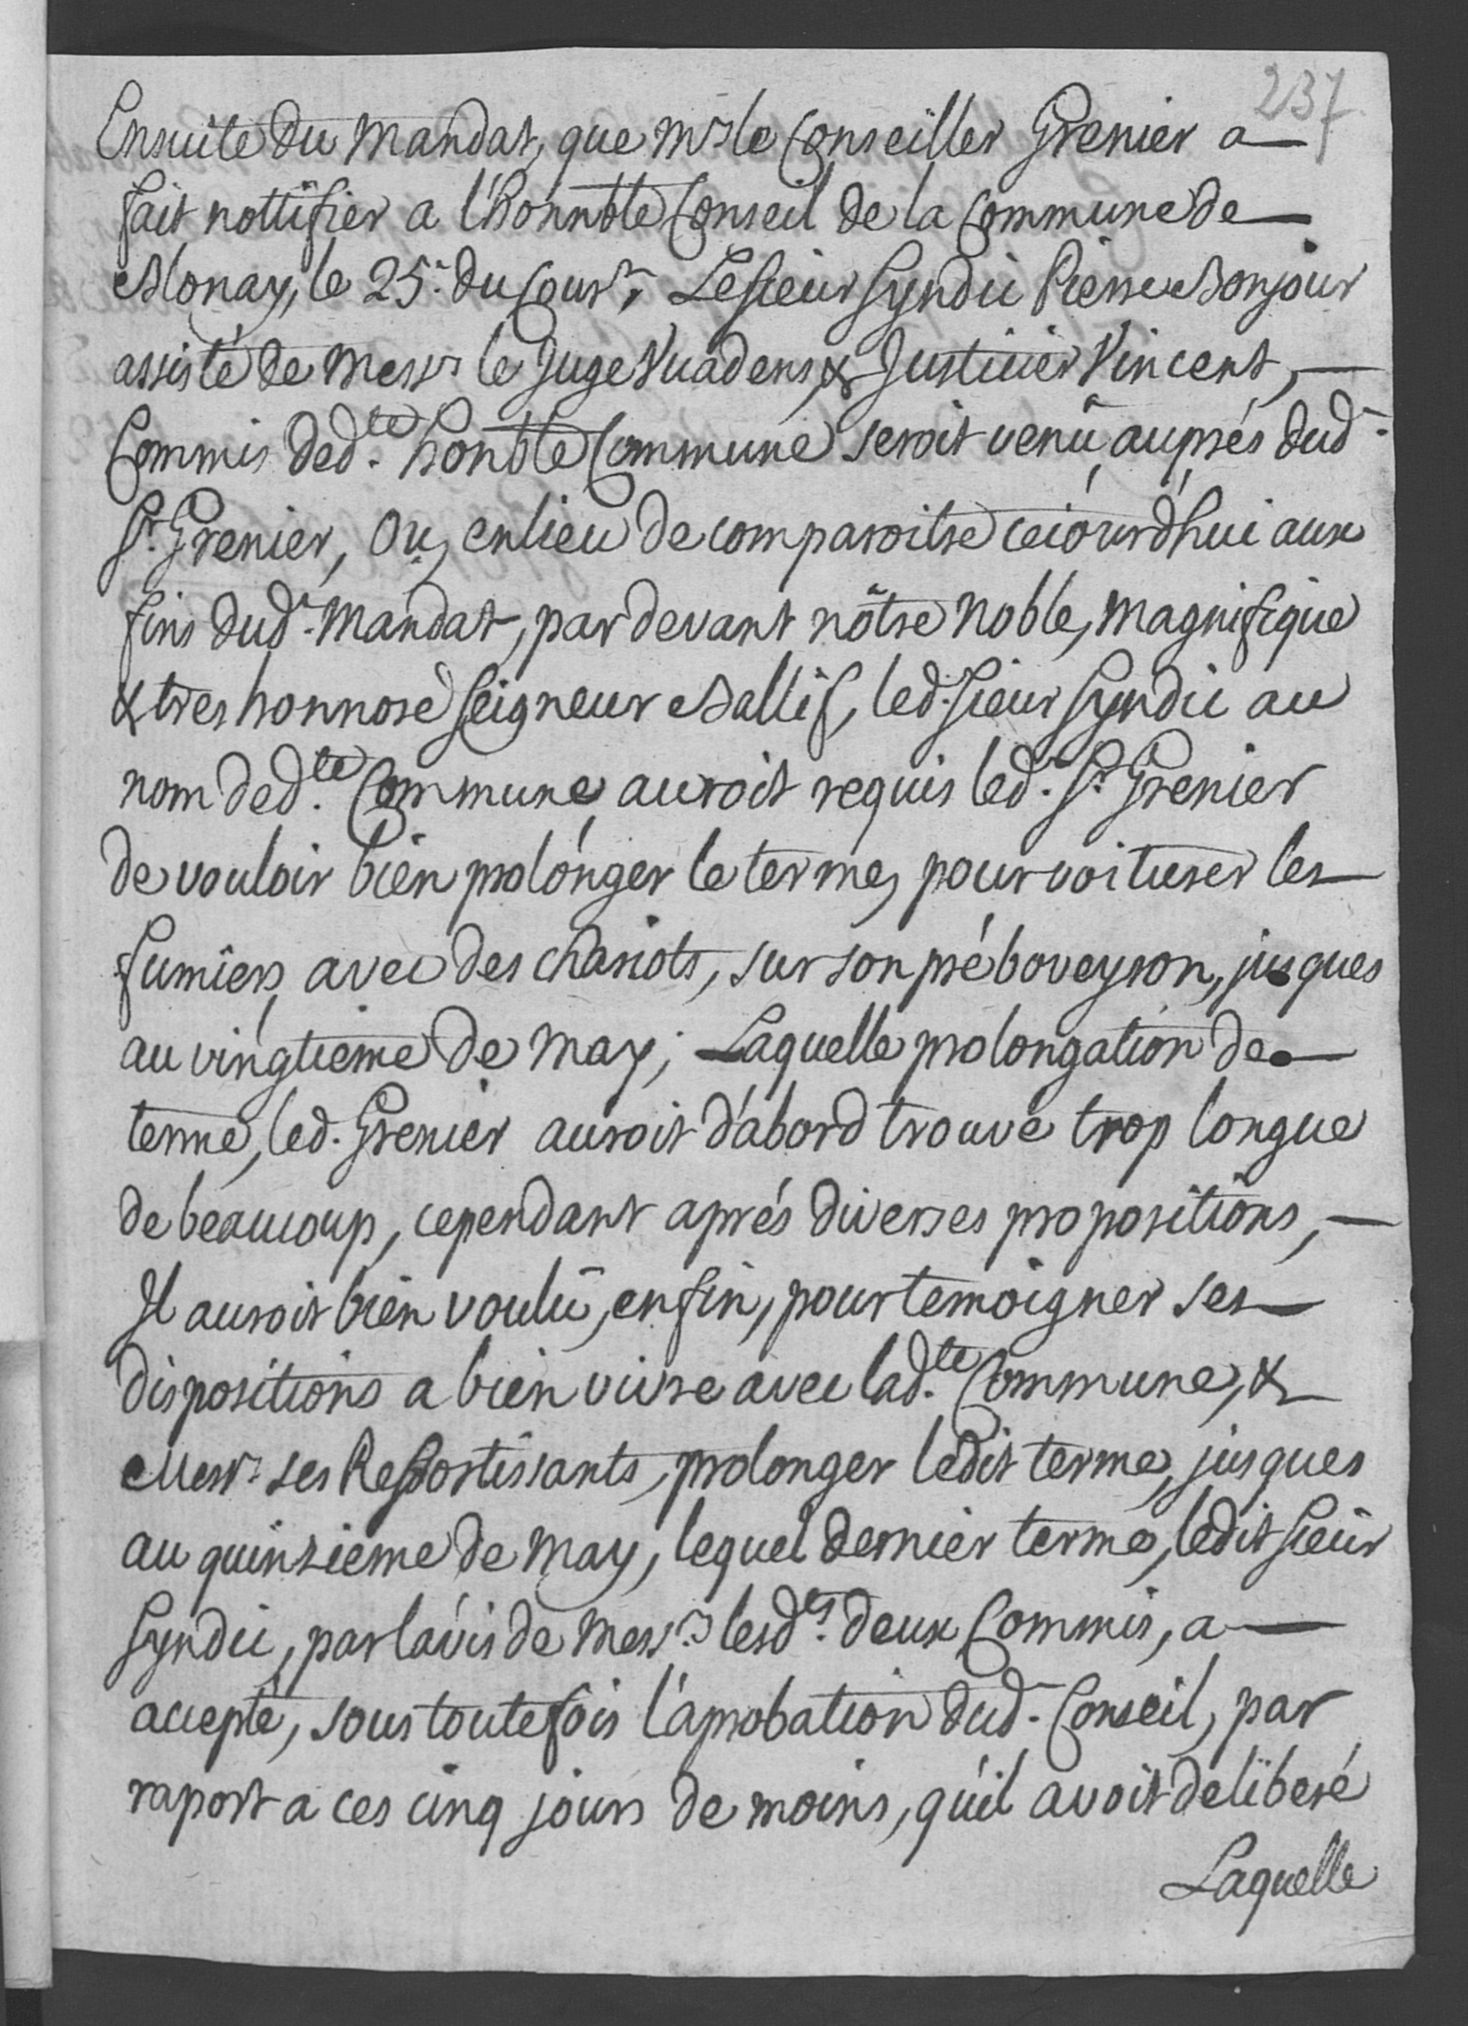 237
Ensuite du Mandat, que Mr le Conseiller Grenier a
fait nottifier a l'honnble Conseil de la Commune de
Blonay, le 25e. du Court, Le sieur Syndic Pierre Bonjour
assisté de Messrs le Juge Vuadens, & Justicier Vincent,
Commis de d.te honble Commune seroit venû auprés dud.
Sr. Grenier, Ou, en lieu de comparoitre cejourd'hui aux
fins dud. Mandat, par devant nôtre Noble, Magnifique
& tres honnoré Seigneur Ballif, led. sieur Syndic au
nom de d.te Commune auroit requis led. Sr. Grenier
de vouloir bien prolonger le terme, pour voiturer les
fumiers, avec des chariots, sur son pré boveyron, jusques
au vingtieme de May; Laquelle prolongation de
terme, led. Grenier auroit d'abord trouvé trop longue
de beaucoup, cependant aprés diverses propositions,
Il auroit bien voulû, enfin, pour temoigner ses
dispositions a bien vivre avec lad.te Commune, &
Messrs. ses Ressortissants, prolonger ledit terme, jusques
au quinzieme de May, lequel dernier terme, ledit sieur
Syndic, par l'avis de Messrs. lesd.ts deux Commis, a
accepté, sous toutefois l'aprobation dud. Conseil, par
raport a ces cinq jours de moins, qu'il avoit deliberé
Laquelle